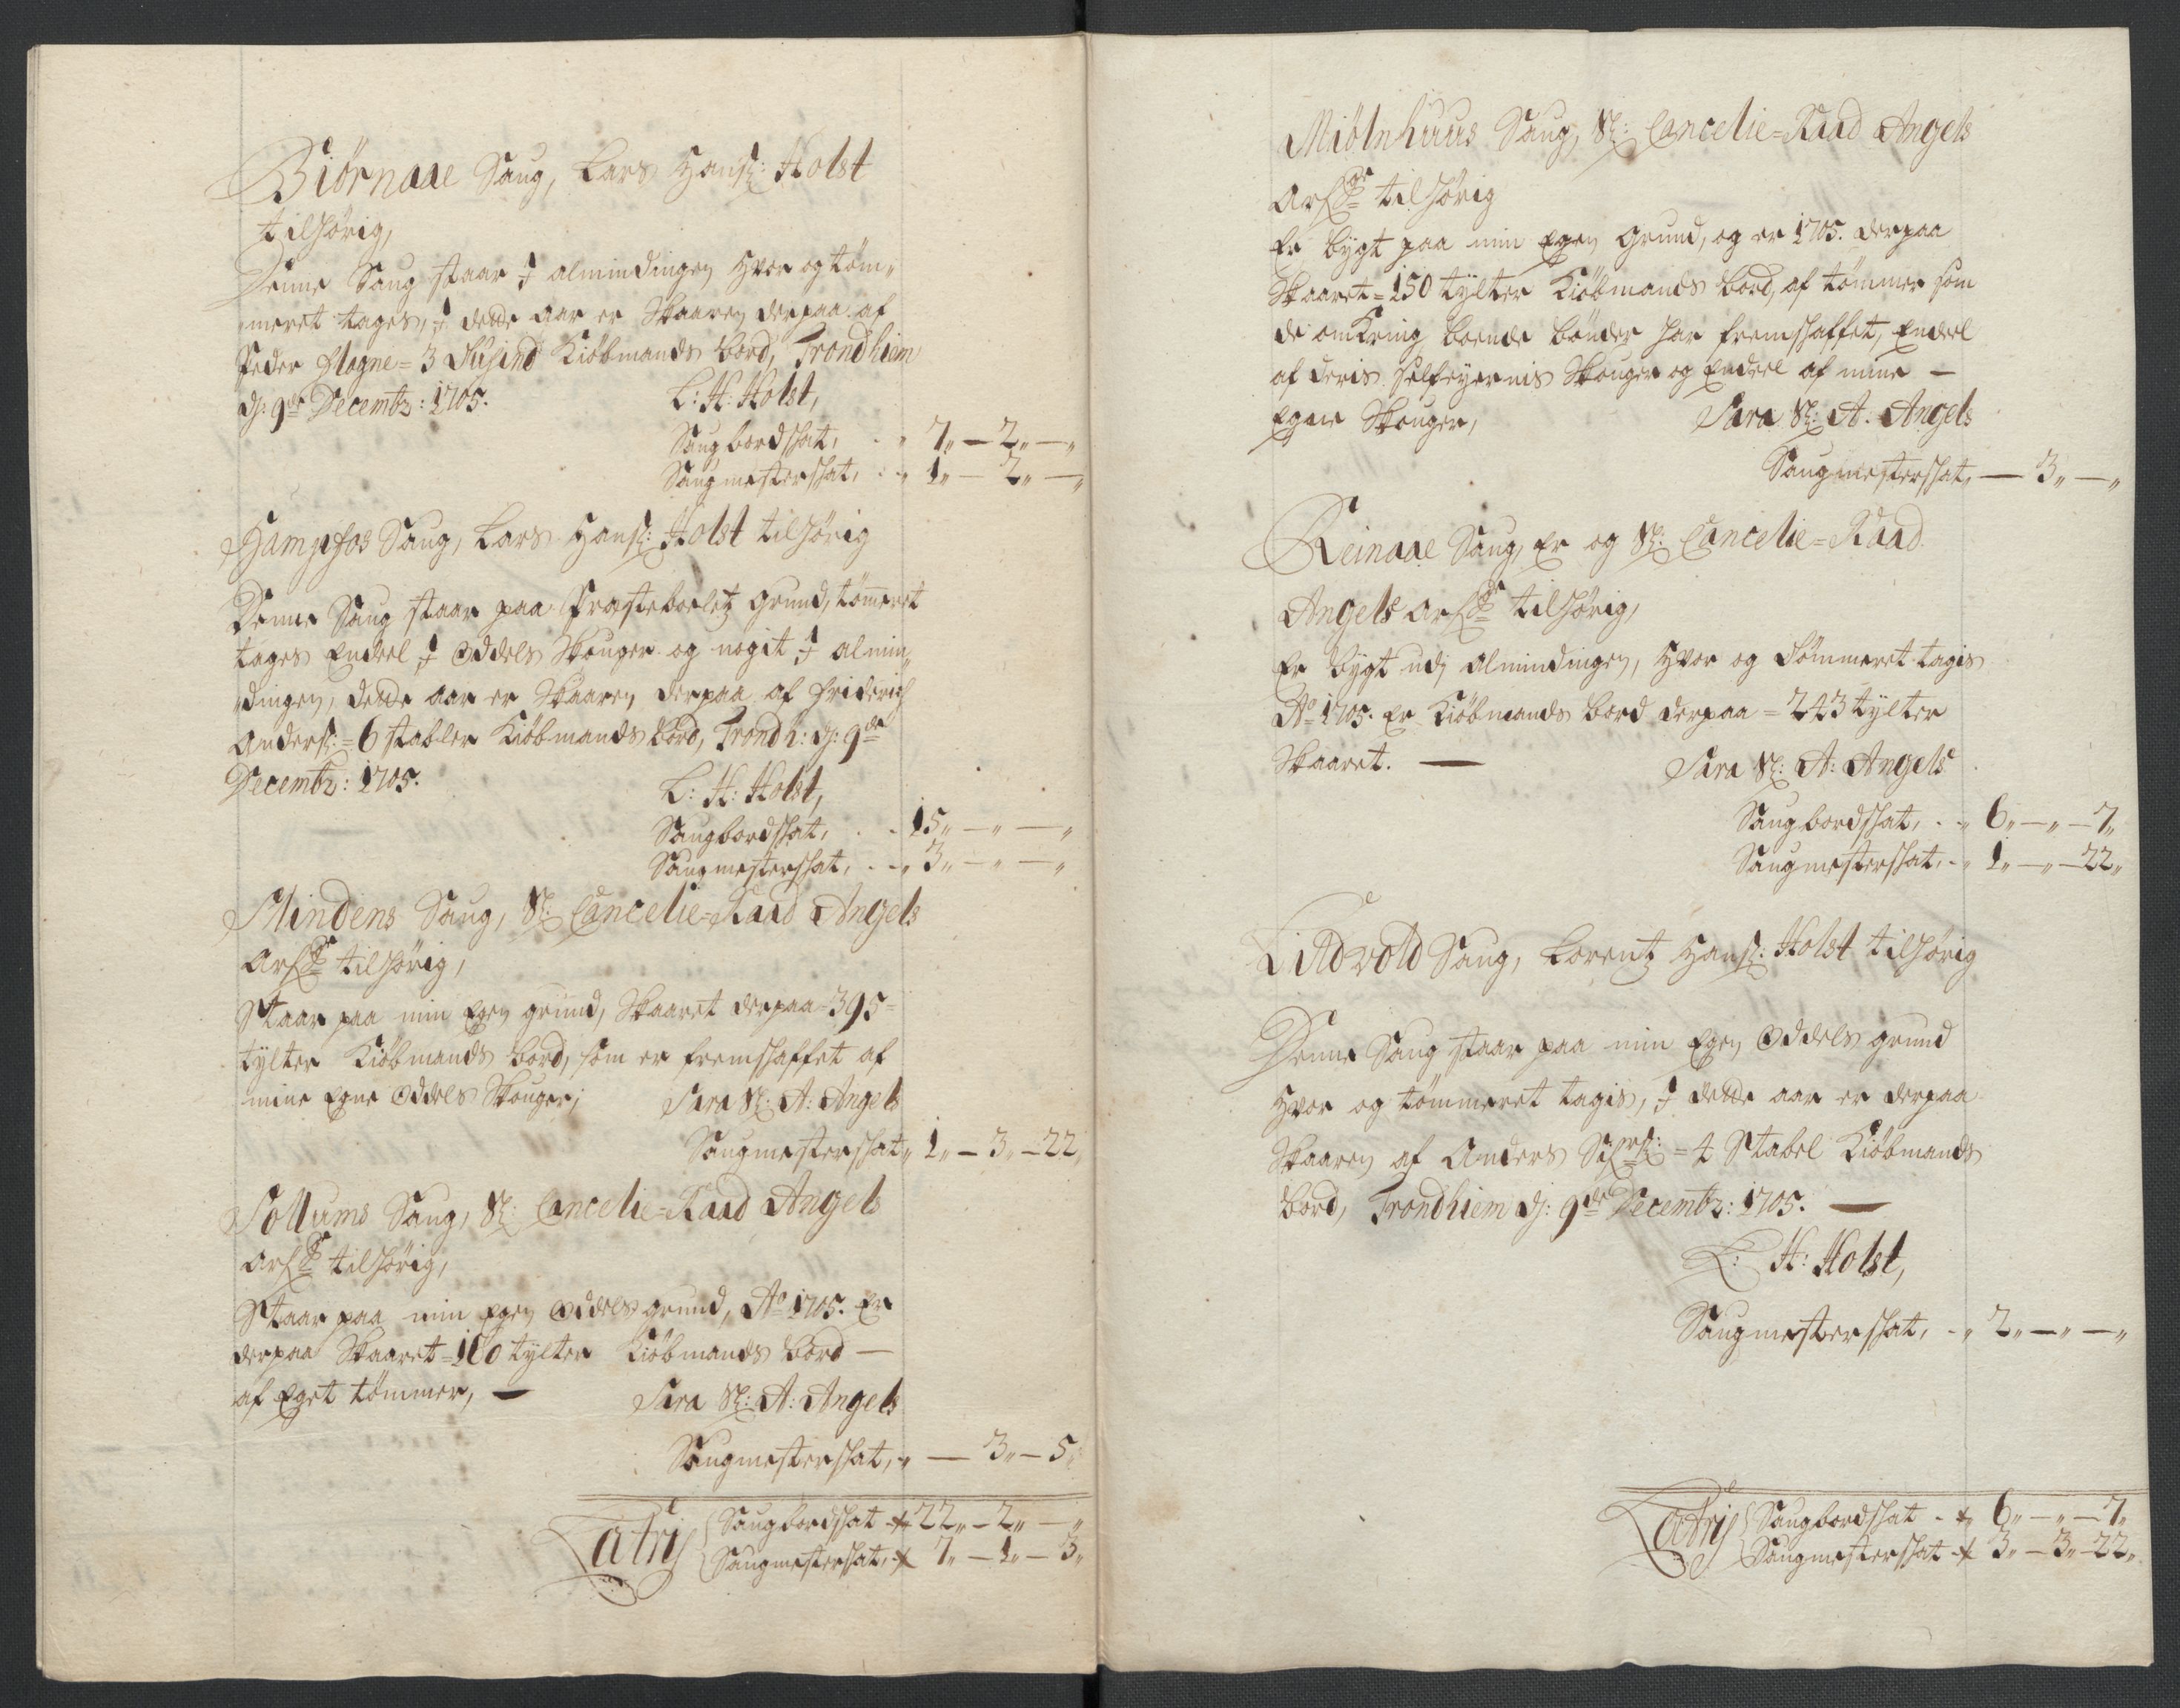 Biörnaae Saug, Lars Hanß: Holst
tilhörig,
Denne Saug staar J almindingen hvor og töm„
meret tages, J dette aar er Skaaren derpaa af
Peder Hogne = 3 Tusind Kiöbmands bord, Trondhiem
dj: 9de Decembr: 1705.
L: H: Holst,
Saugbordskat, . „ 7„ — 2„ — „
Saugmesterskat, . „ 1„ — 2„ — „
Hampfos Saug, Lars Hanß: Holst tilhörig
Denne Saug staar paa Præsteboeletz Grund, tömeret
tages Endeel J Oddels Skouger og nogit J almin„
dingen, dette aar er Skaaren derpaa af Friderich
Anderß: = 6 stabler Kiöbmands bord, Trondh: dj: 9de
Decembr: 1705.
L: H: Holst,
Saugbordskat, . . 15„ — „ — „
Saugmesterskat, . „ 3„ — „ — „
Mindens Saug, Sl: Cancelie=Raad Angels
Arfr tilhörig,
Staar paa min Egen grund, Skaaret derpaa = 395 =
tylter Kiöbmands bord, som er fremskaffet af
mine Egne Oddels Skouger,
Sara Sl: A: Angels
Saugmesterskat„ 1„ — 3„ — 22„
Sollums Saug, Sl: Cancelie=Raad Angels
Arfr tilhörig,
Staar paa min Egen Oddels grund, Ao 1705. Er
derpaa Skaaret = 160 tylter Kiöbmands Bord —
af Eget tömmer, —
Sara Sl: A: Angels
Saugmesterskat, „ — 3„ — 5„
Latris Saugbordskat 22„ — 2„ — „
Saugmesterskat, 7„ — 1„ — 3„
Miölnhuus Saug, Sl: Cancelie=Raad Angels
Arfr tilhörig
Er bygt paa min Egen Grund, og er 1705. derpaa
Skaaret = 150 tylter Kiöbmands bord, af tömmer som
de omkring boende bönder har fremskaffet, Endeel
af deris Selfeyernis Skouger og Endeel af mine —
Egne Skouger,
Sara Sl: A. Angels
Saugmesterskat, — 3„ — „
Reinaae Saug, Er og Sl: Cancelie=Raad
Angels Arfr tilhörig,
Er bygt udj Almindingen, hvor og Tömmeret tagis
Ao 1705. Er Kiöbmands bord derpaa = 243 tylter
Skaaret. —
Sara Sl: A: Angels
Saugbordskat, . „ 6„ — „ — 7„
Saugmesterskat, . „ 1„ — „ — 22„
Lidvold Saug, Lorentz Hanß: Holst tilhörig
Denne Saug staar paa min Egen Oddels grund
hvor og tömmeret tagis, J dette aar er derpaa
Skaaren af Anders = 4 Stabel Kiöbmands
bord, Trondhiem dj: 9de Decembr: 1705. —
L: H: Holst,
Saugmesterskat, . „ 2„ — „ — „
Latris Saugbordskat . 6„ — „ — 7„
Saugmesterskat 3„ — 3„ — 22„